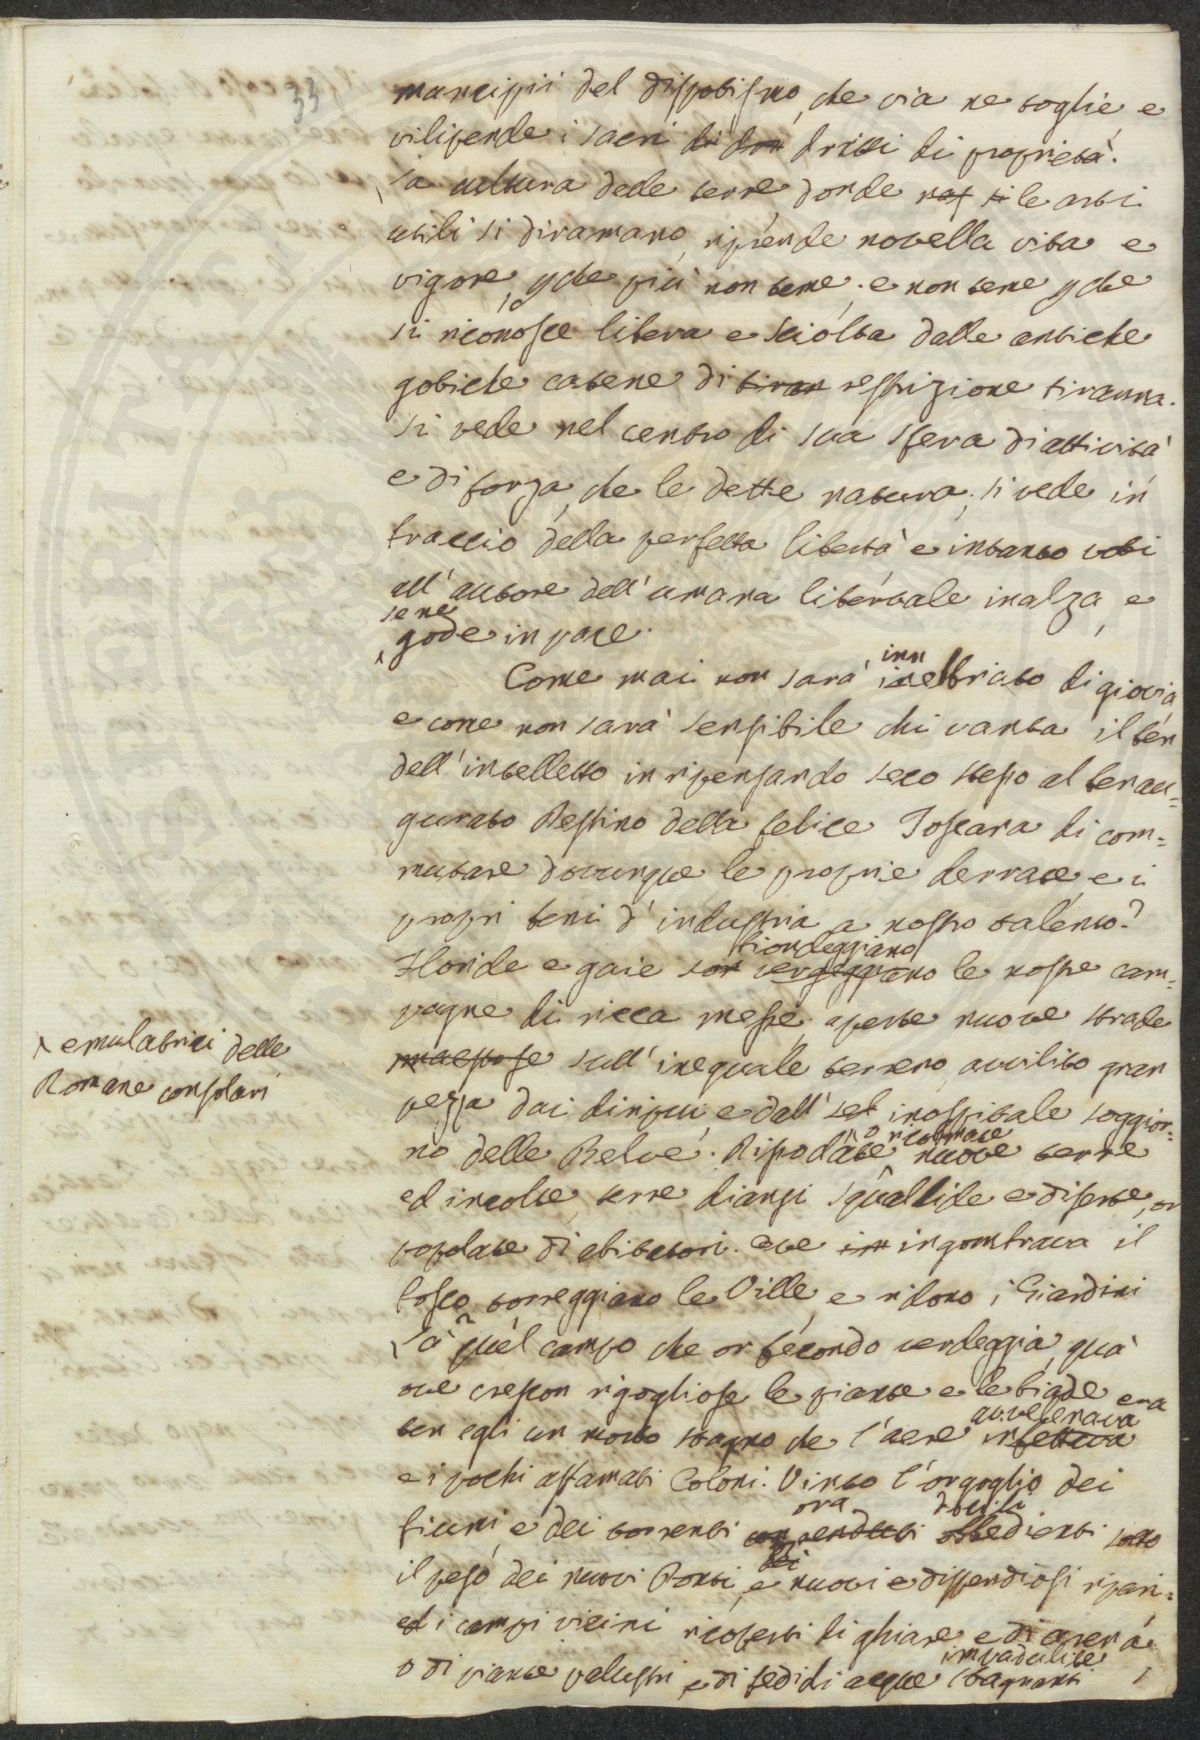 33
mancipii del dispotismo, che via ne toglie, e
vilipende i sacri di don dritti di proprietà.
La cultura delle terre donde le arti
utili si diramano, riprende novella vita e
vigore, pche più non teme; e non teme pche
si riconosce libera e sciolta dalle antiche
gotiche catene di tiran restrizione tiranna.
Si vede nel centro di sua sfera di attività
e di forza, che le dette natura; si vede in
braccio della perfetta libertà e intanto voti
all'autore dell'umana libertà le inalza, e
se ne
gode in pace.
Come mai non sarà innebriato di gioia
e come non sarà sensibile chi vanta il ben
dell'intelletto in ripensando seco stesso al benau=
gurato Destino della felice Toscana di com=
mutare dovunque le proprie derrate, e i
propri beni d'industria a nostro talento?
biondeggiano
Floride e gaie son verdeggiano le nostre cam=
pagne di ricca messe; aperte nuove strade
emulatrici delle
Romane consolari
maestose sull'ineguale terreno, avvilito gran
pezza dai dirupi, e dall' inospitale soggior=
no delle Belve. Risodate nuove terre
ed incolte, terre dianzi squallide e diserte, or
popolate di abitatori. Ove im ingombrava il
bosco, torreggiano le Ville, e ridono i Giardini
Là quel campo che or fecondo verdeggia, quà
ove crescon rigogliose le piante e le biade era
avvelenava
ben egli un morto stagno che l'aere infettava
e i pochi affamati Coloni. Vinto l'orgoglio dei
ora docili
fiumi, e dei torrenti con renduti obbedienti sotto
dei
il peso dei nuovi Ponti, e nuovi e dispendiosi ripari=
ed i campi vicini ricoperti di ghiare e di arena
impadulite
o di piante palustri, e di fedidi acque stagnanti